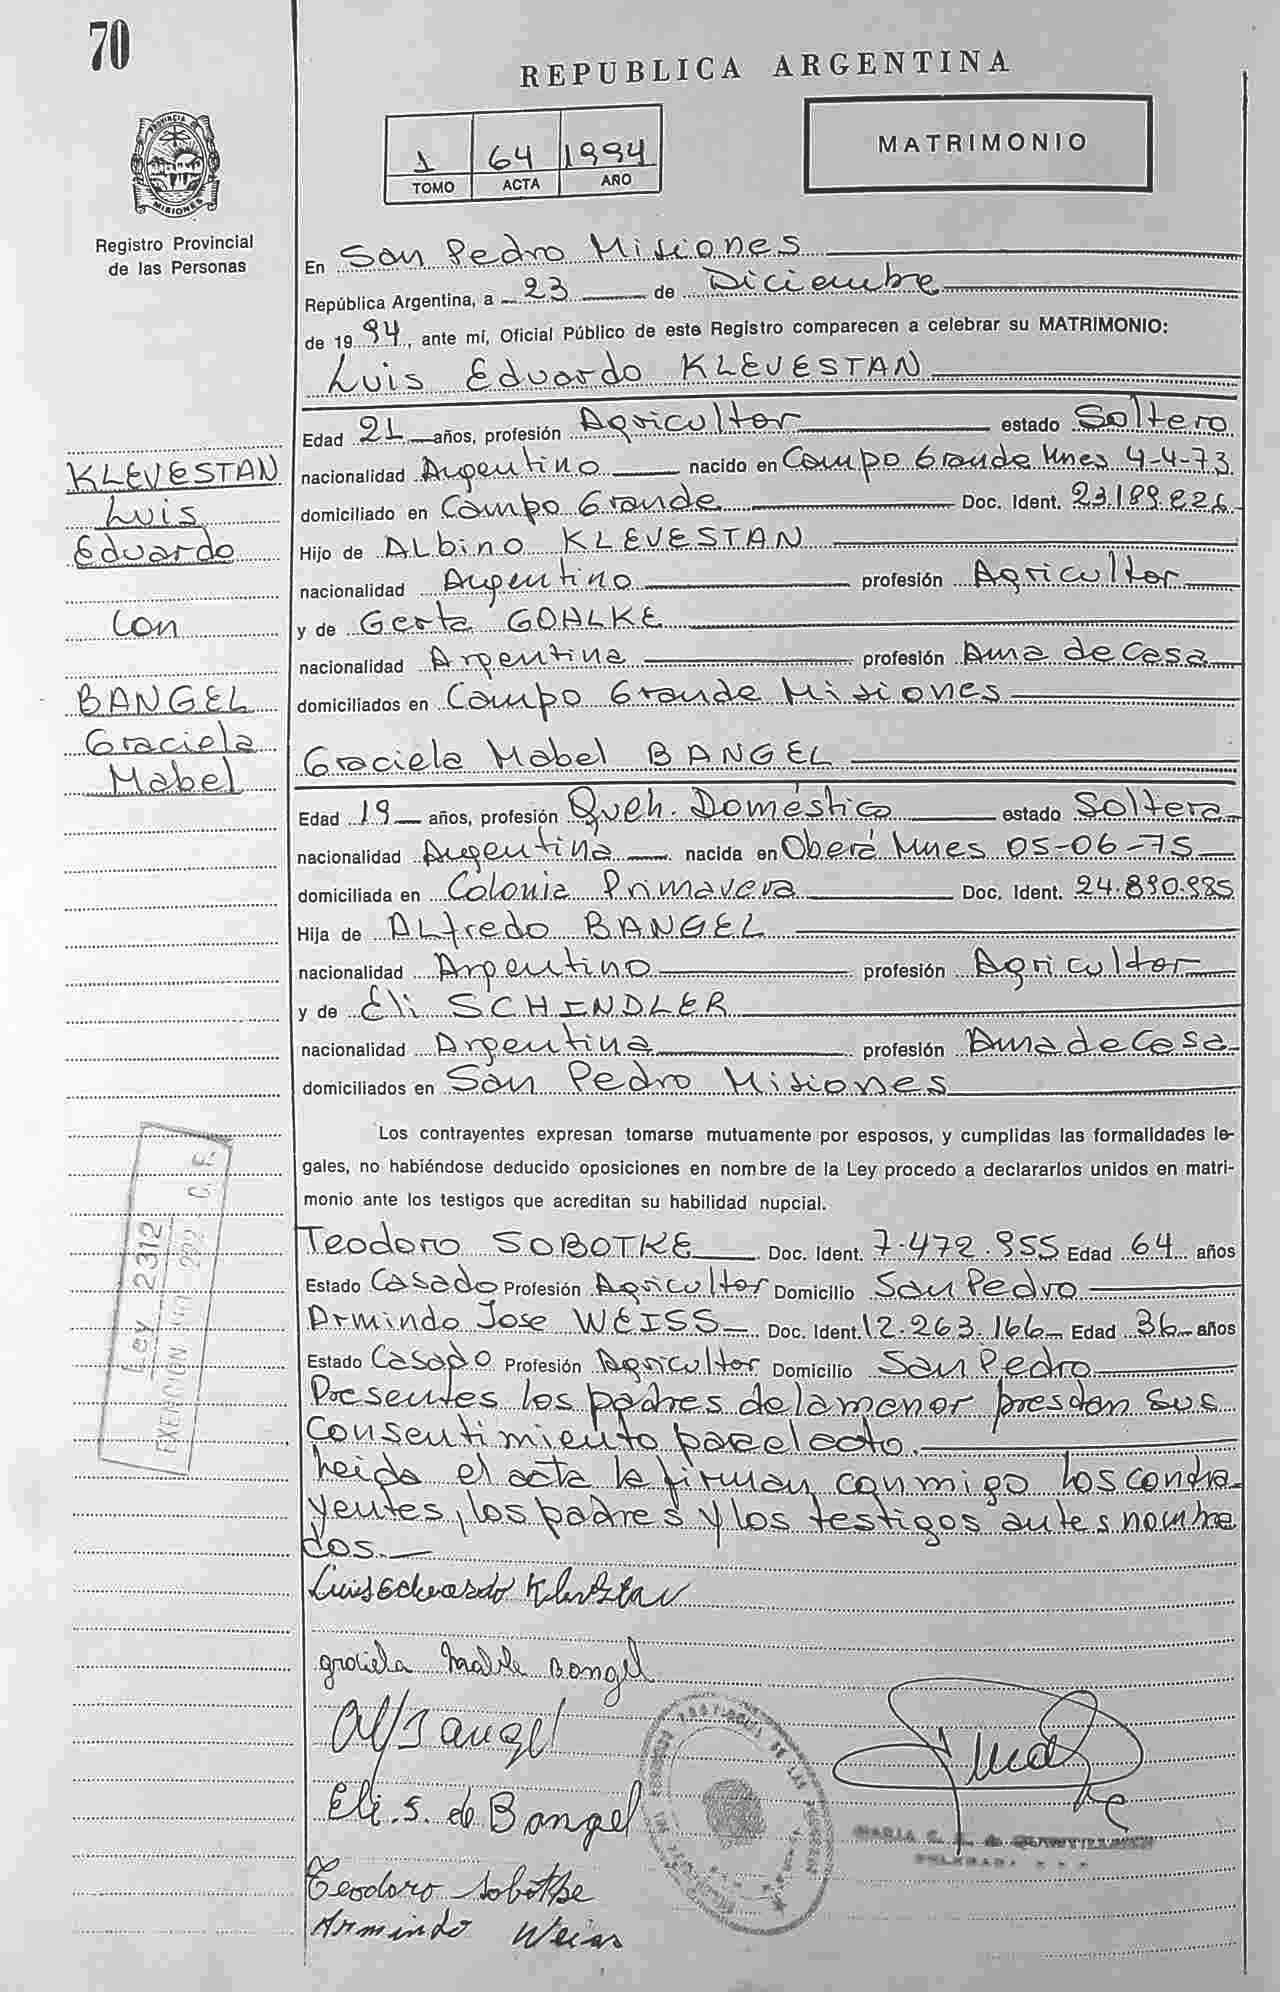 70
REPUBLICA ARGENTINA
1 64 1994
TOMO ACTA AÑO
MATRIMONIO
PROVINCIA DE MISIONES
Registro Provincial
de las Personas
En San Pedro Misiones
República Argentina, a 23 de Diciembre
de 19 94, ante mí, Oficial Público de este Registro comparecen a celebrar su MATRIMONIO:
Luis Eduardo KLEVESTAN
Edad 21 años, profesión Agricultor estado Soltero
nacionalidad Argentino nacido en Campo Grande Mnes 4-4-73
domiciliado en Campo Grande Doc. Ident. 23.189.826
Hijo de Albino KLEVESTAN
nacionalidad Argentino profesión Agricultor
y de Gerta GOHLKE
nacionalidad Argentina profesión Ama de Casa
domiciliados en Campo Grande Misiones
Graciela Mabel BANGEL
Edad 19 años, profesión Queh. Doméstico estado Soltera
nacionalidad Argentina nacida en Oberá Mnes 05-06-75
domiciliada en Colonia Primavera Doc. Ident. 24.890.985
Hija de Alfredo BANGEL
nacionalidad Argentino profesión Agricultor
y de Eli SCHINDLER
nacionalidad Argentina profesión Ama de Casa
domiciliados en San Pedro Misiones
Los contrayentes expresan tomarse mutuamente por esposos, y cumplidas las formalidades le-
gales, no habiéndose deducido oposiciones en nombre de la Ley procedo a declararlos unidos en matri-
monio ante los testigos que acreditan su habilidad nupcial.
Teodoro SOBOTKE Doc. Ident. 7.472.955 Edad 64 años
Estado Casado Profesión Agricultor Domicilio San Pedro
Armindo Jose WEISS Doc. Ident. 12.263.166 Edad 36 años
Estado Casado Profesión Agricultor Domicilio San Pedro
Presentes los padres de la menor prestan sus
Consentimiento para el acto.
Leida el acta la firman conmigo los contra-
yentes, los padres y los testigos antes nombra
dos.
Luis Eduardo Klevestan
graciela Mabel Bangel
Alf Bangel
Eli. S. de Bangel
Teodoro Sobotke
Armindo Weiss
KLEVESTAN
Luis
Eduardo
Con
BANGEL
Graciela
Mabel
Ley 2312
EXENCION